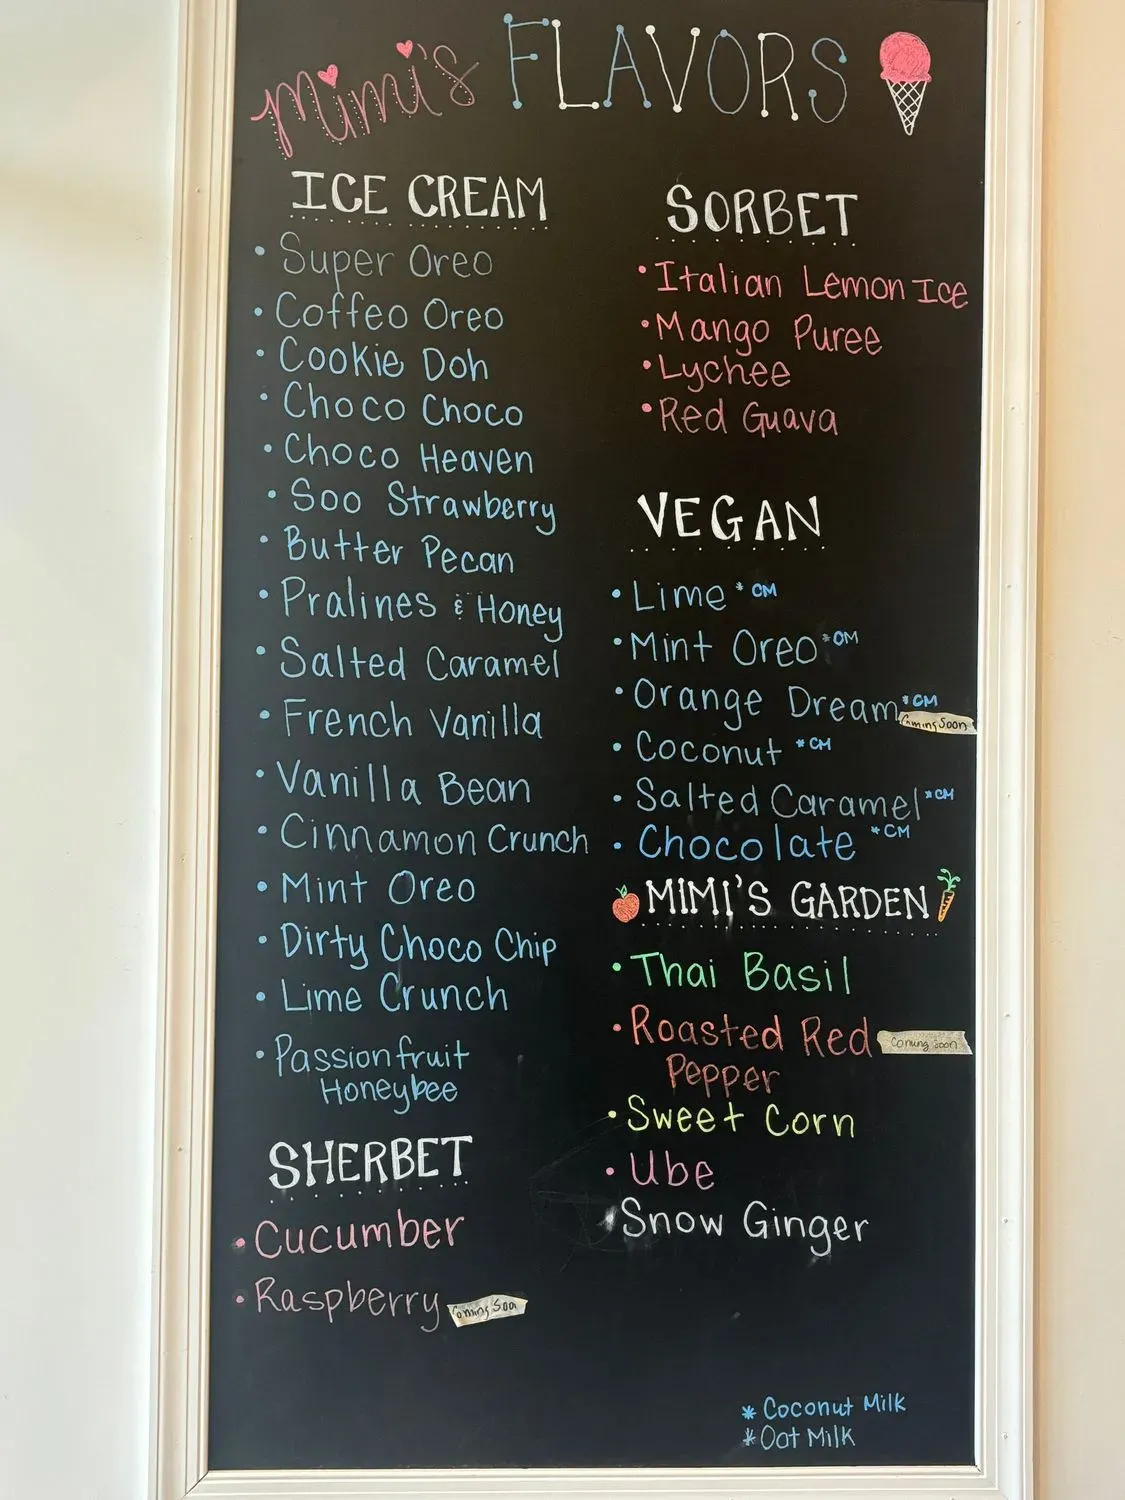 mimi's FLAVORS
ICE CREAM
• Super Oreo
• Coffeo Oreo
• Cookie Doh
• Choco Choco
• Choco Heaven
• Soo Strawberry
• Butter Pecan
• Pralines & Honey
• Salted Caramel
• French Vanilla
• Vanilla Bean
• Cinnamon Crunch
• Mint Oreo
• Dirty Choco Chip
• Lime Crunch
• Passionfruit
Honeybee
SHERBET
• Cucumber
• Raspberry Coming Soon
SORBET
• Italian Lemon Ice
• Mango Puree
• Lychee
• Red Guava
VEGAN
• Lime *CM
• Mint Oreo *OM
• Orange Dream *CM
Coming Soon
• Coconut *CM
• Salted Caramel *CM
• Chocolate *CM
MIMI'S GARDEN
• Thai Basil
• Roasted Red Coming soon
Pepper
• Sweet Corn
• Ube
• Snow Ginger
* Coconut Milk
* Oat Milk